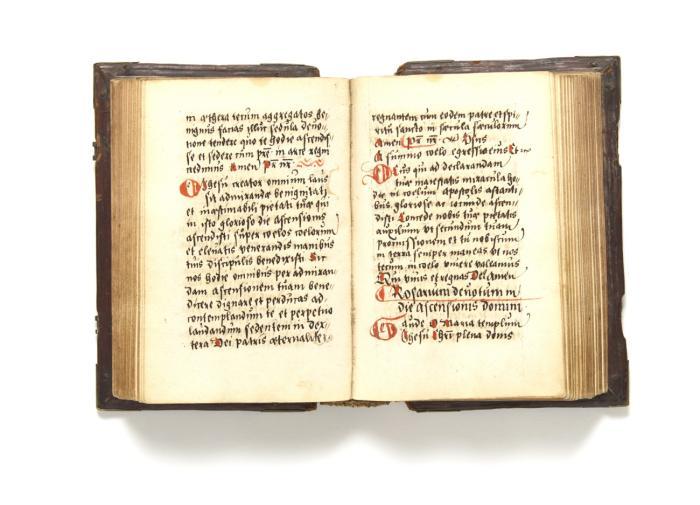 in æthera tecum aggregatos be-
nignus facias illuc sedula devo-
tione tendere quo te hodie ascendis-
se et sedere cum pre in arce regni
credimus Amen Pr nr
O Jhesu creator omnium laus
sit admirandæ benignitati
et inæstimabili pietati tuæ qui
in isto glorioso die ascensionis
ascendisti super coelos coelorum
et elevatis venerandis manibus
tuis discipulis benedixisti Sic
nos hodie omnibus per admiran-
dam ascensionem tuam bene-
dicere dignare et perducas ad
contemplandum te et perpetuo
laudandum sedentem in dex-
tera Dei patris æternaliter
regnantem cum eodem patre et spi-
ritu sancto in sæcula sæculorum
Amen Pr nr
A summo coelo egressio eius
Deus qui ad declarandam
tuæ maiestatis miracula ho-
die in coelum apostolis astanti-
bus gloriose ac iocunde ascen-
disti Concede nobis tuæ pietatis
auxilium ut secundum tuam
promissionem et tu nobiscum
in terra semper maneas et nos
tecum in coelo vivere valeamus
Qui vivis et regnas Deus Amen
Rosarium devotum in
die ascensionis domini
Gaude O Maria templum
Jhesu Chri plena donis